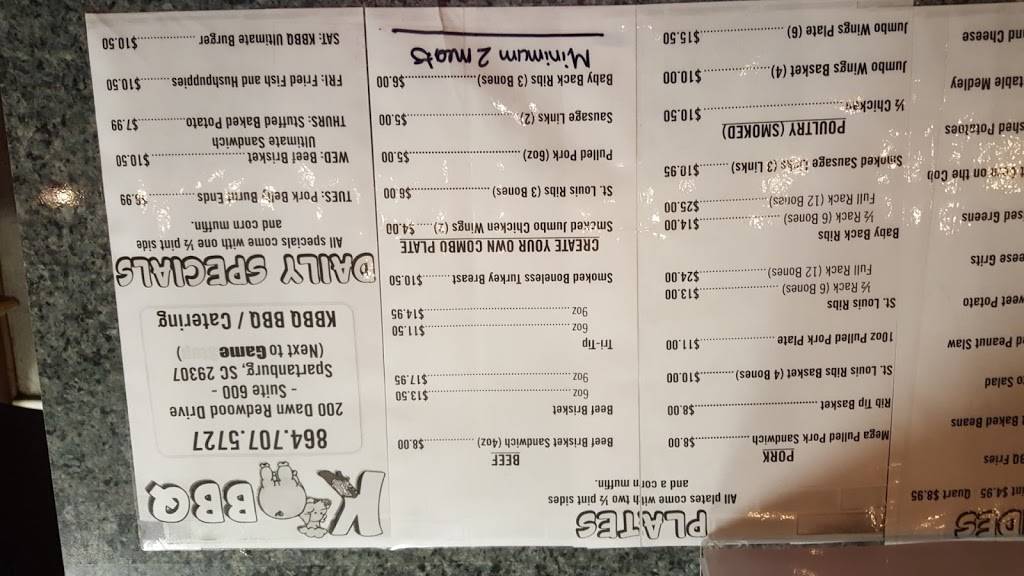 DES
nt $4.95 Quart $8.95
BQ Fries
Baked Beans
to Salad
ed Peanut Slaw
weet Potato
eese Grits
sed Greens
Corn on the Cob
shed Potatoes
table Medley
and Cheese
PLATES
All plates come with two ½ pint sides
and a corn muffin.
PORK
Mega Pulled Pork Sandwich ..........$8.00
Rib Tip Basket ..........$8.00
St. Louis Ribs Basket (4 Bones) ..........$10.00
10oz Pulled Pork Plate ..........$11.00
St. Louis Ribs
½ Rack (6 Bones) ..........$13.00
Full Rack (12 Bones) ..........$24.00
Baby Back Ribs
½ Rack (6 Bones) ..........$14.00
Full Rack (12 Bones) ..........$25.00
Smoked Sausage Links (3 Links) ..........$10.95
POULTRY (SMOKED)
½ Chicken ..........$10.50
Jumbo Wings Basket (4) ..........$10.00
Jumbo Wings Plate (6) ..........$15.50
BEEF
Beef Brisket Sandwich (4oz) ..........$8.00
Beef Brisket
6oz ..........$13.50
9oz ..........$17.95
Tri-Tip
6oz ..........$11.50
9oz ..........$14.95
Smoked Boneless Turkey Breast ..........$10.50
CREATE YOUR OWN COMBO PLATE
Smoked Jumbo Chicken Wings (2) ..........$4.00
St. Louis Ribs (3 Bones) ..........$6.00
Pulled Pork (6oz) ..........$5.00
Sausage Links (2) ..........$5.00
Baby Back Ribs (3 Bones) ..........$6.00
Minimum 2 meats
K BBQ
864.707.5727
200 Dawn Redwood Drive
- Suite 600 -
Spartanburg, SC 29307
(Next to Game )
KBBQ BBQ / Catering
DAILY SPECIALS
All specials come with one ½ pint side
and corn muffin.
TUES: Pork Belly Burnt Ends ..........$6.95
WED: Beef Brisket ..........$10.50
Ultimate Sandwich
THURS: Stuffed Baked Potato ..........$7.99
FRI: Fried Fish and Hushpuppies ..........$10.50
SAT: KBBQ Ultimate Burger ..........$10.50